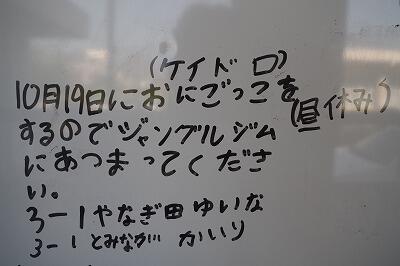 (ケイドロ)
10月19日におにごっこを(昼休み)
するのでジャングルジム
にあつまってくださ
い。
3-1やなぎ田ゆいな
3-1とみなが かいり